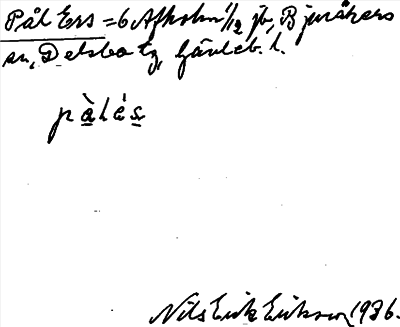 Pål Ers = 6 Afholm 1/12 jb, Bjuråkers
sn, Delsbo tg, Gävleb. l.
pàlés
Nils Erik Eriksson 1936.